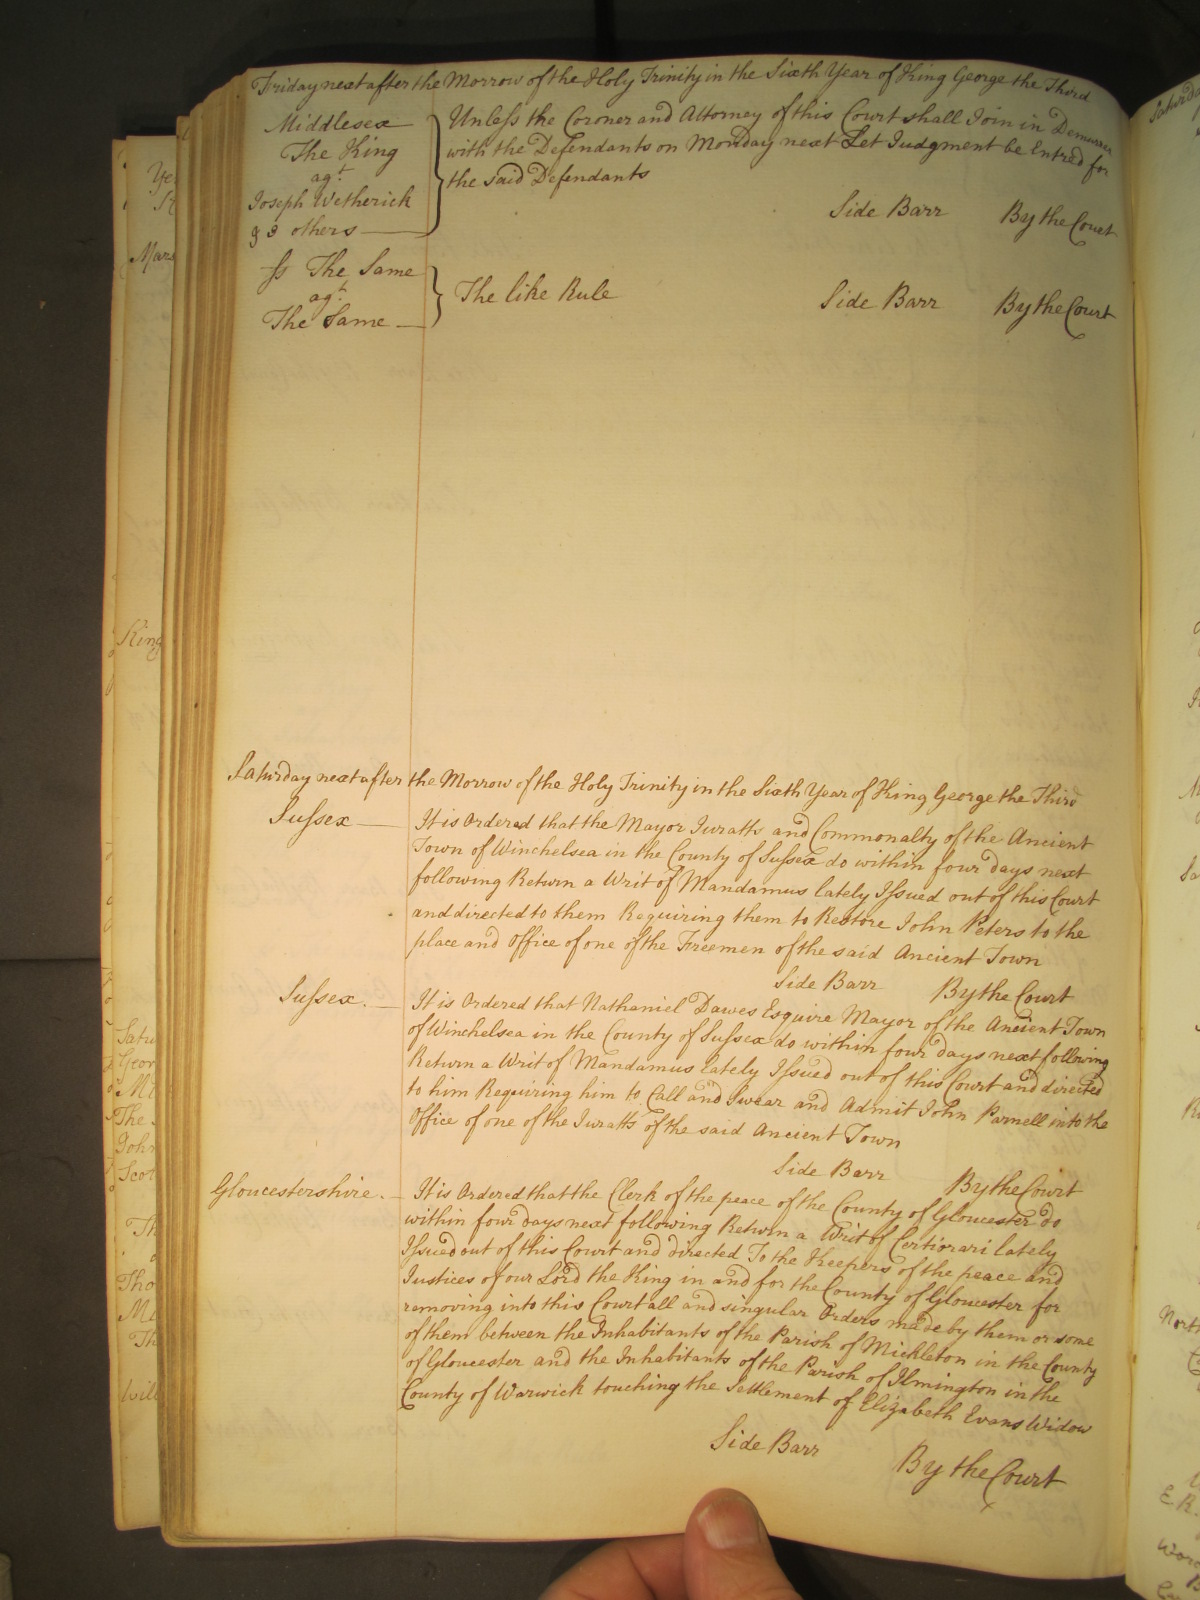 Friday next after the Morrow of the Holy Trinity in the Sixth Year of King George the Third
Middlesex
The King
agt.
Joseph Wetherick
& 3 others
Unless the Coroner and Attorney of this Court shall Join in Demurrer
with the Defendants on Monday next Let Judgment be Entred for
the said Defendants
Side Barr By the Court
Ss The Same
agt.
The Same
The like Rule
Side Barr By the Court
Saturday next after the Morrow of the Holy Trinity in the Sixth Year of King George the Third
Sussex
It is Ordered that the Mayor Juratts and Commonalty of the Ancient
Town of Winchelsea in the County of Sussex do within four days next
following Return a Writ of Mandamus lately Issued out of this Court
and directed to them Requiring them to Restore John Peters to the
place and Office of one of the Freemen of the said Ancient Town
Side Barr By the Court
Sussex.
It is Ordered that Nathaniel Dawes Esquire Mayor of the Ancient Town
of Winchelsea in the County of Sussex do within four days next following
Return a Writ of Mandamus lately Issued out of this Court and directed
to him Requiring him to Call and Swear and Admit John Parnell into the
Office of one of the Juratts of the said Ancient Town
Side Barr By the Court
Gloucestershire.
It is Ordered that the Clerk of the peace of the County of Gloucester do
within four days next following Return a Writ of Certiorari lately
Issued out of this Court and directed To the Keepers of the peace and
Justices of our Lord the King in and for the County of Gloucester for
removing into this Court all and singular Orders made by them or some
of them between the Inhabitants of the Parish of Mickleton in the County
of Gloucester and the Inhabitants of the Parish of Ilmington in the
County of Warwick touching the Settlement of Elizabeth Evans Widow
Side Barr By the Court